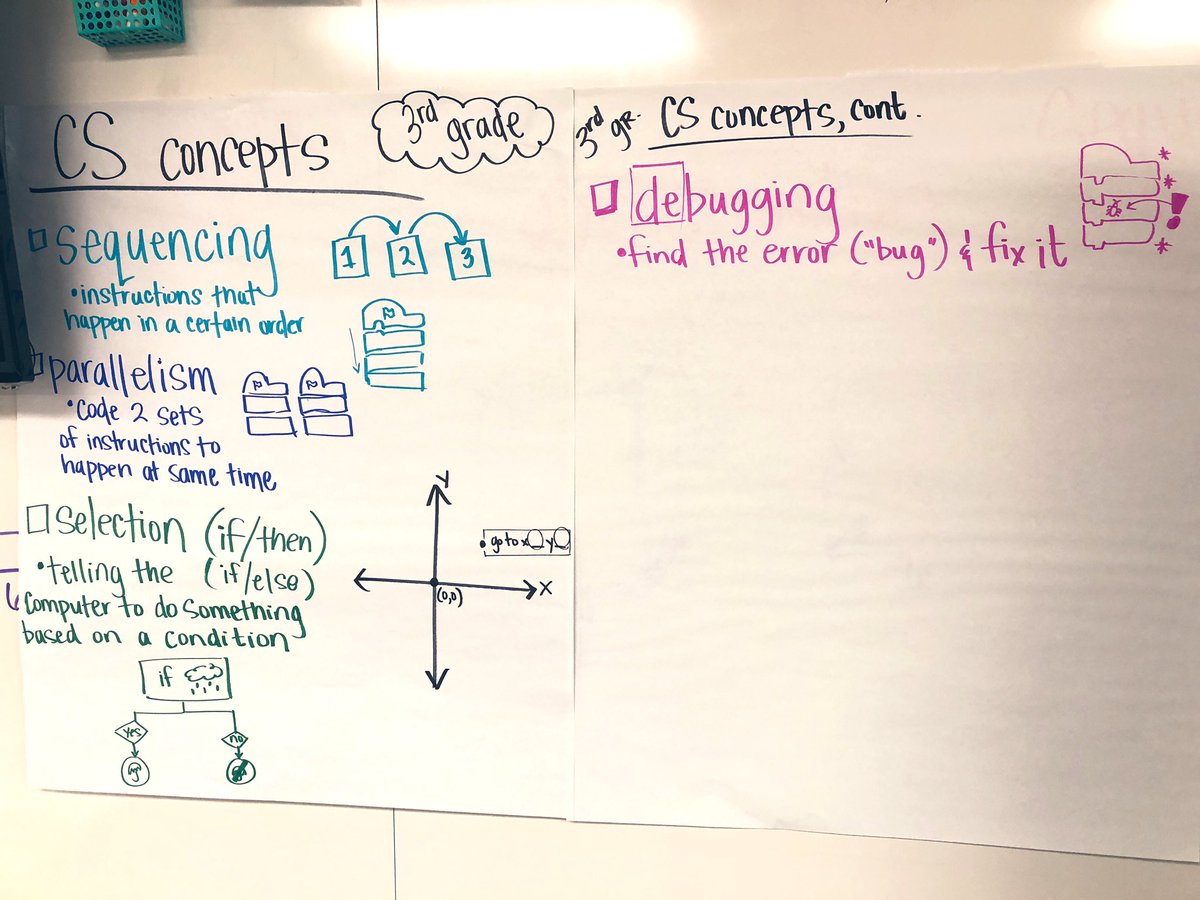 CS concepts
3rd
grade
sequencing
1 2 3
•instructions that
happen in a certain order
parallelism
•code 2 sets
of instructions to
happen at same time
selection (if/then)
•telling the (if/else)
computer to do something
based on a condition
if
yes no
y
•go to x y
x
(0,0)
3rd gr. CS concepts, cont.
debugging
•find the error ("bug") & fix it